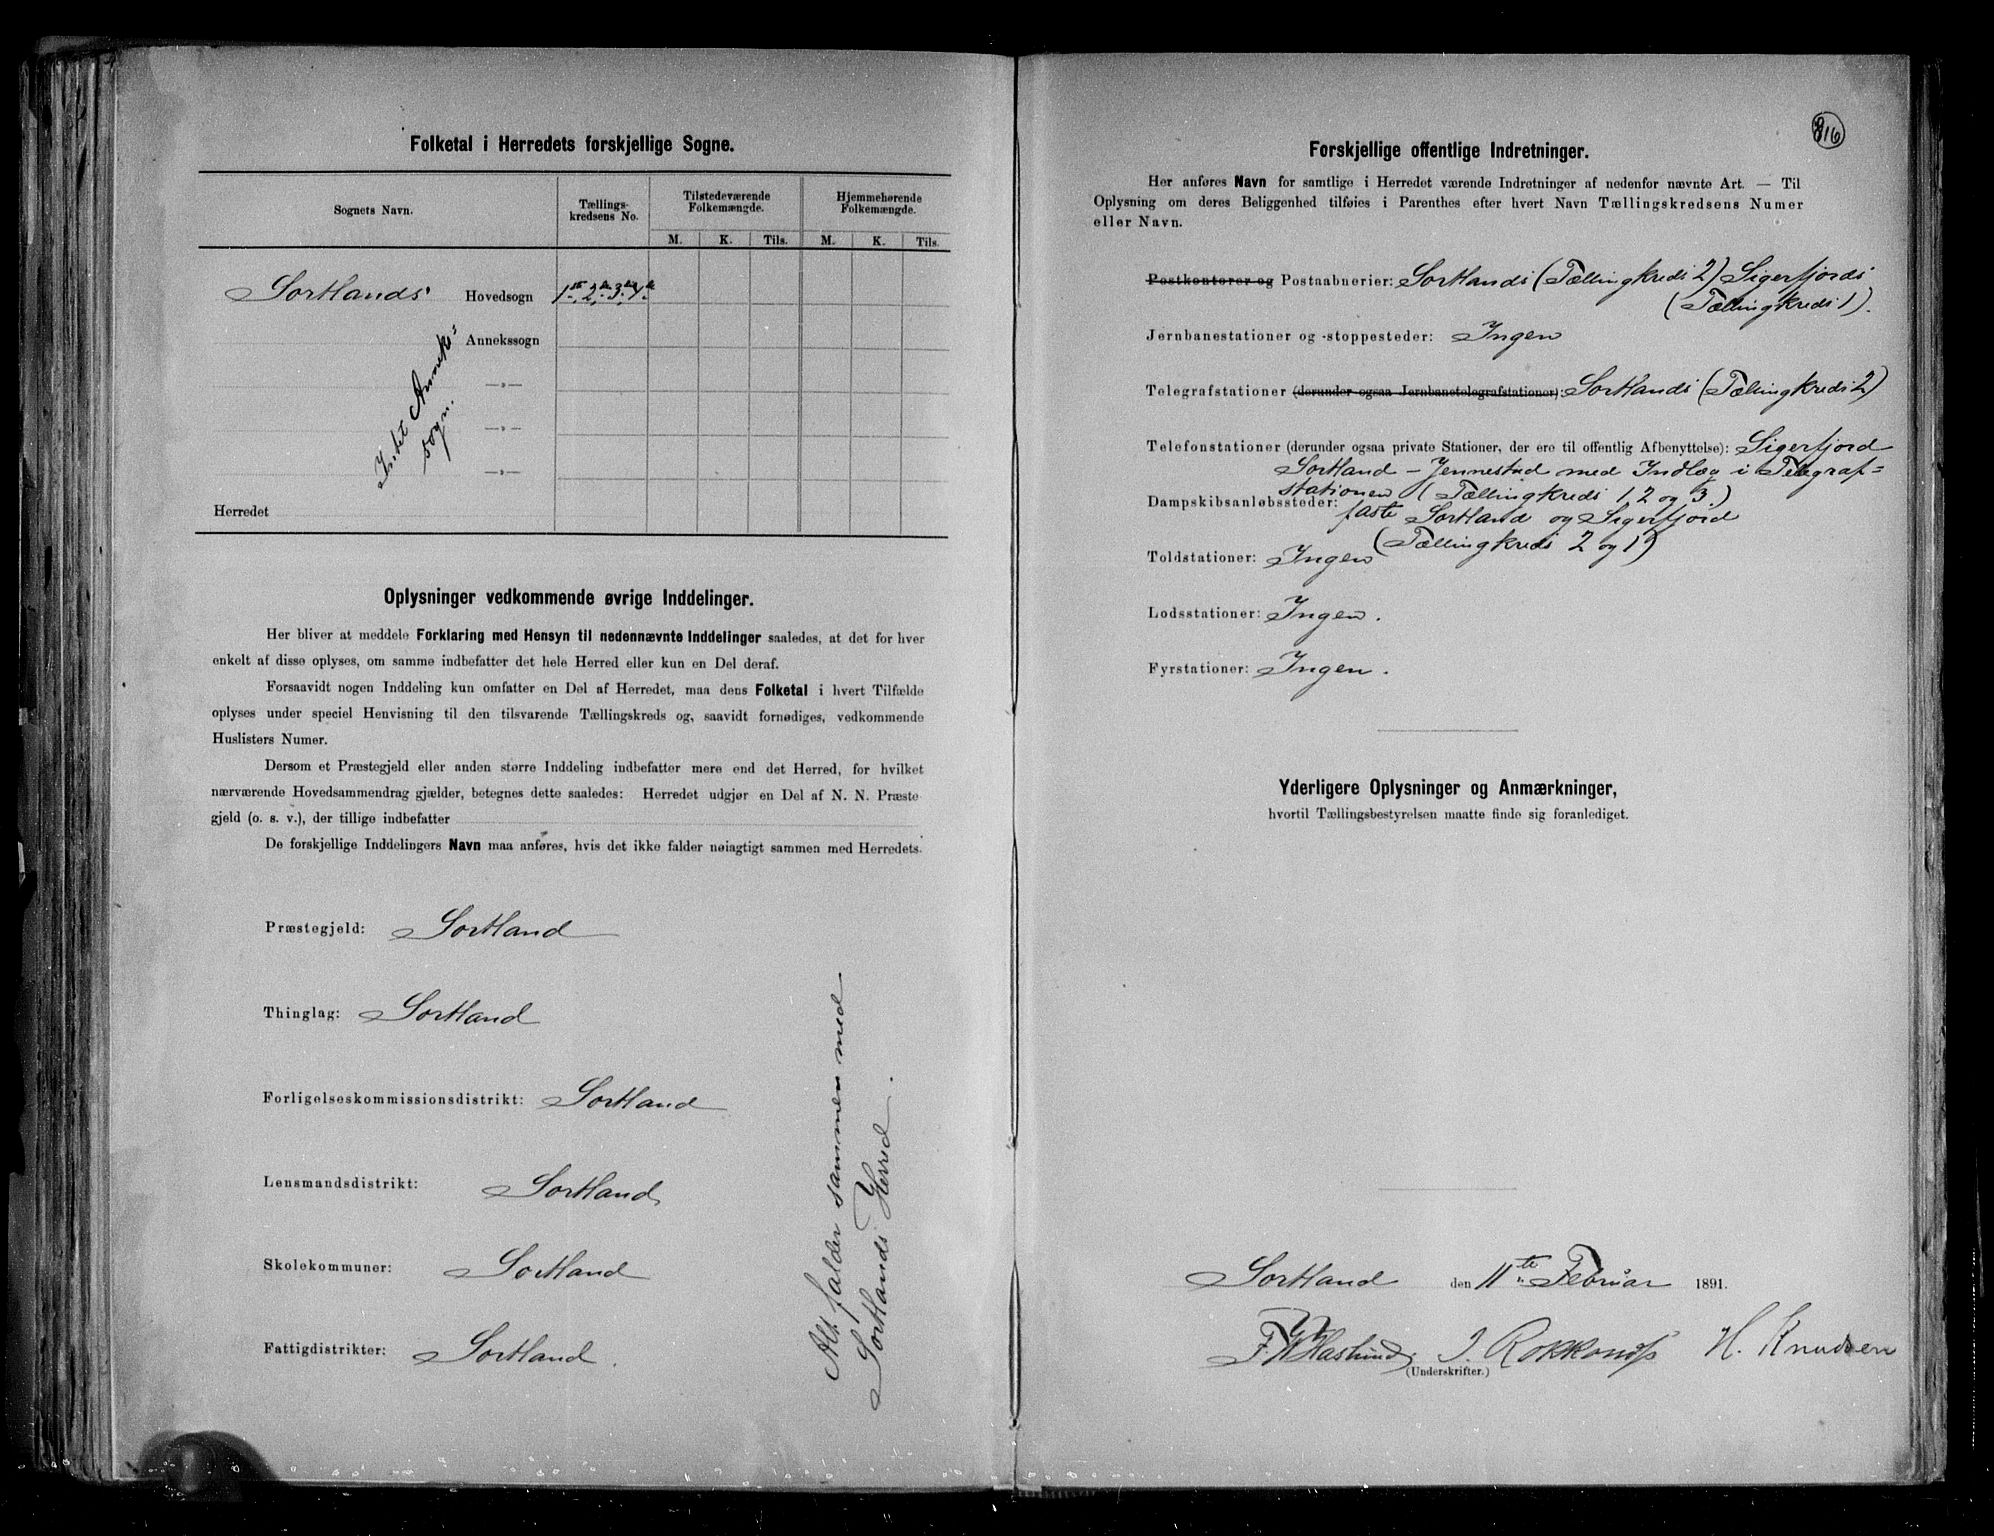 Folketal i Herredets forskjellige Sogne.
Sognets Navn.
Tællings-
kredsens No.
Tilstedeværende
Folkemængde.
Hjemmehørende
Folkemængde.
M. K. Tils. M. K. Tils.
Sortlands Hovedsogn
Annekssogn
Intet Anneks=
sogn.
—„—
—„—
—„—
Herredet
Oplysninger vedkommende øvrige Inddelinger.
Her bliver at meddele Forklaring med Hensyn til nedennævnte Inddelinger saaledes, at det for hver
enkelt af disse oplyses, om samme indbefatter det hele Herred eller kun en Del deraf.
Forsaavidt nogen Inddeling kun omfatter en Del af Herredet, maa dens Folketal i hvert Tilfælde
oplyses under speciel Henvisning til den tilsvarende Tællingskreds og, saavidt fornødiges, vedkommende
Huslisters Numer.
Dersom et Præstegjeld eller anden større Inddeling indbefatter mere end det Herred, for hvilket
nærværende Hovedsammendrag gjælder, betegnes dette saaledes: Herredet udgjør en Del af N. N. Præste-
gjeld (o. s. v.), der tillige indbefatter
De forskjellige Inddelingers Navn maa anføres, hvis det ikke falder nøiagtigt sammen med Herredets.
Præstegjeld: Sortland
Thinglag: Sortland
Forligelseskommissionsdistrikt: Sortland
Lensmandsdistrikt: Sortland
Skolekommuner: Sortland
Fattigdistrikter: Sortland.
Alt falder sammen med
Sortlands Herred.
Forskjellige offentlige Indretninger.
Her anføres Navn for samtlige i Herredet værende Indretninger af nedenfor nævnte Art. — Til
Oplysning om deres Beliggenhed tilføies i Parenthes efter hvert Navn Tællingskredsens Numer
eller Navn.
Postkontorer og Postaabnerier: Sortlands (Tællingkreds 2) Sigerfjords
(Tællingkreds 1).
Jernbanestationer og -stoppesteder: Ingen
Telegrafstationer (derunder ogsaa Jernbanetelegrafstationer): Sortlands (Tællingkreds 2)
Telefonstationer (derunder ogsaa private Stationer, der ere til offentlig Afbenyttelse): Sigerfjord
Sortland – Jennestad med Indlæg i Telegraf=
stationen (Tællingkreds 1, 2 og 3.)
Dampskibsanløbssteder: faste Sortland og Sigerfjord
(Tællingkreds 2 og 1)
Toldstationer: Ingen
Lodsstationer: Ingen.
Fyrstationer: Ingen.
Yderligere Oplysninger og Anmærkninger,
hvortil Tællingsbestyrelsen maatte finde sig foranlediget.
Sortland den 11te Februar 1891.
Haslund H. Knudsen
(Underskrifter.)